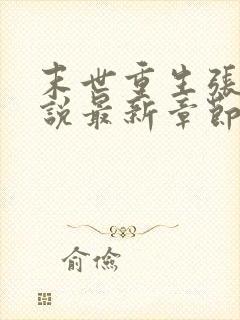 末世重生張
說最新章節
俞俭